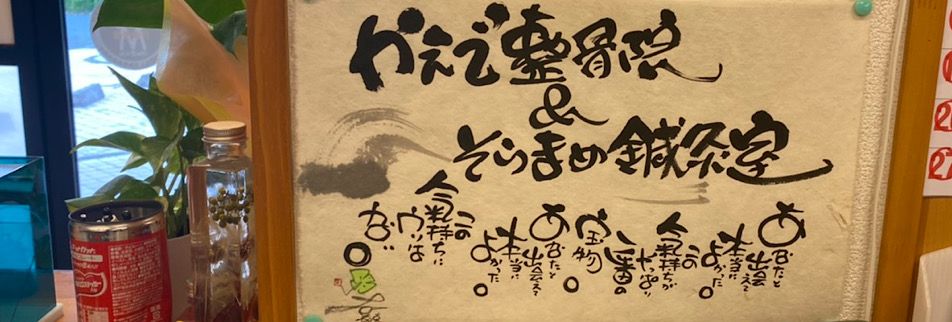 かえで整骨院
&
そらまめ鍼灸室
あなたと
出会えて
本当に
よかった。
この
気持ちが
やっぱり
一番の
宝物
あなたと
出会えて
本当に
よかった。
今
この
気持ちに
ウソは
ない。